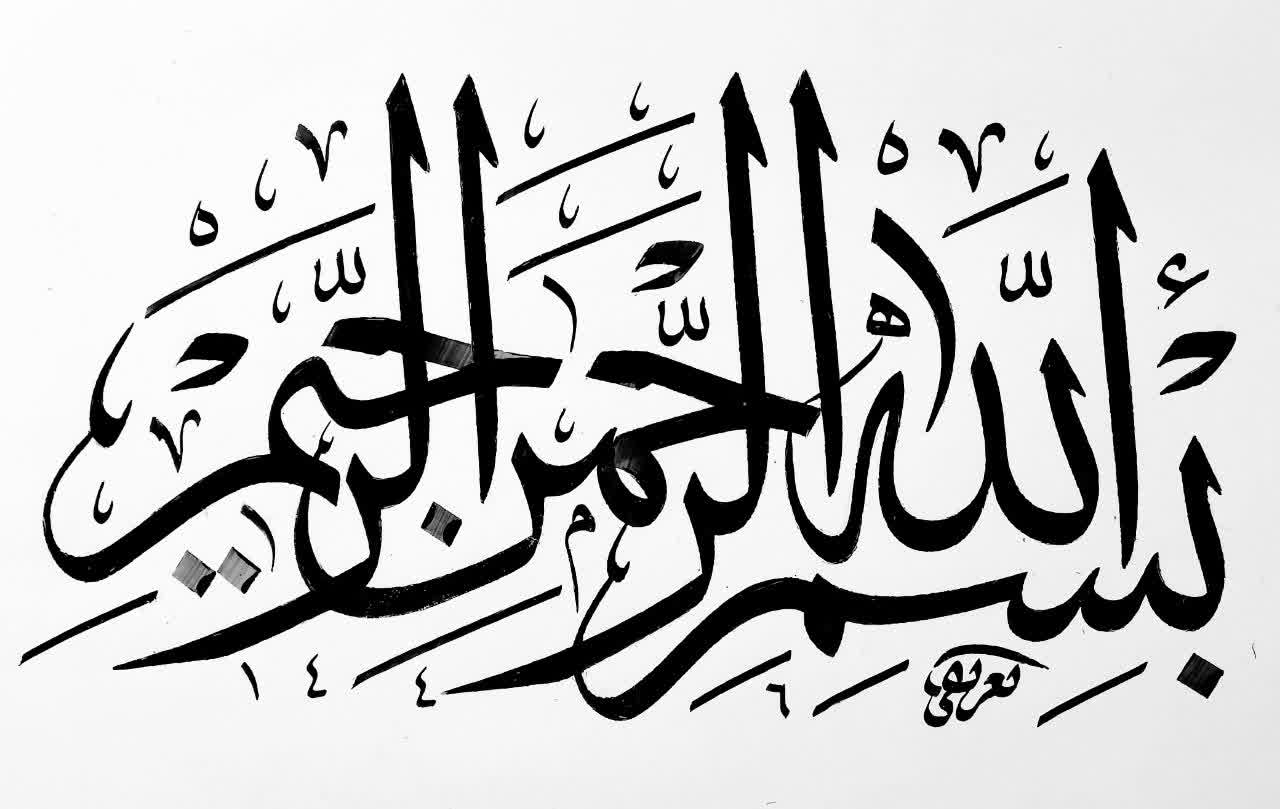 بِسْمِ اللَّهِ الرَّحْمٰنِ الرَّحِيمِ
١٤٤٦